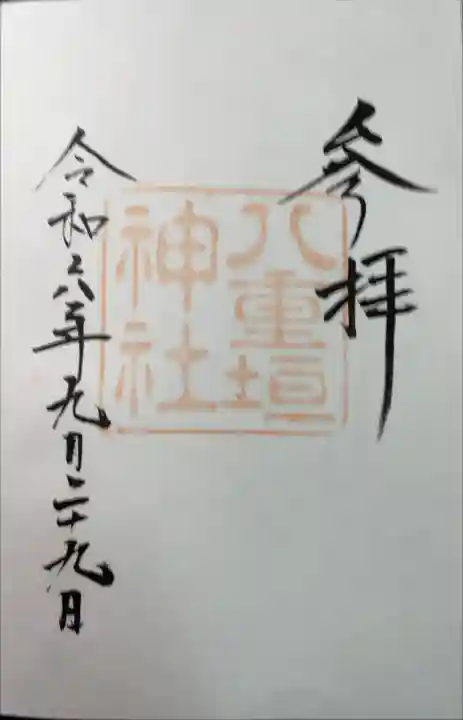 参拝
八重垣
神社
令和六年九月二十九日